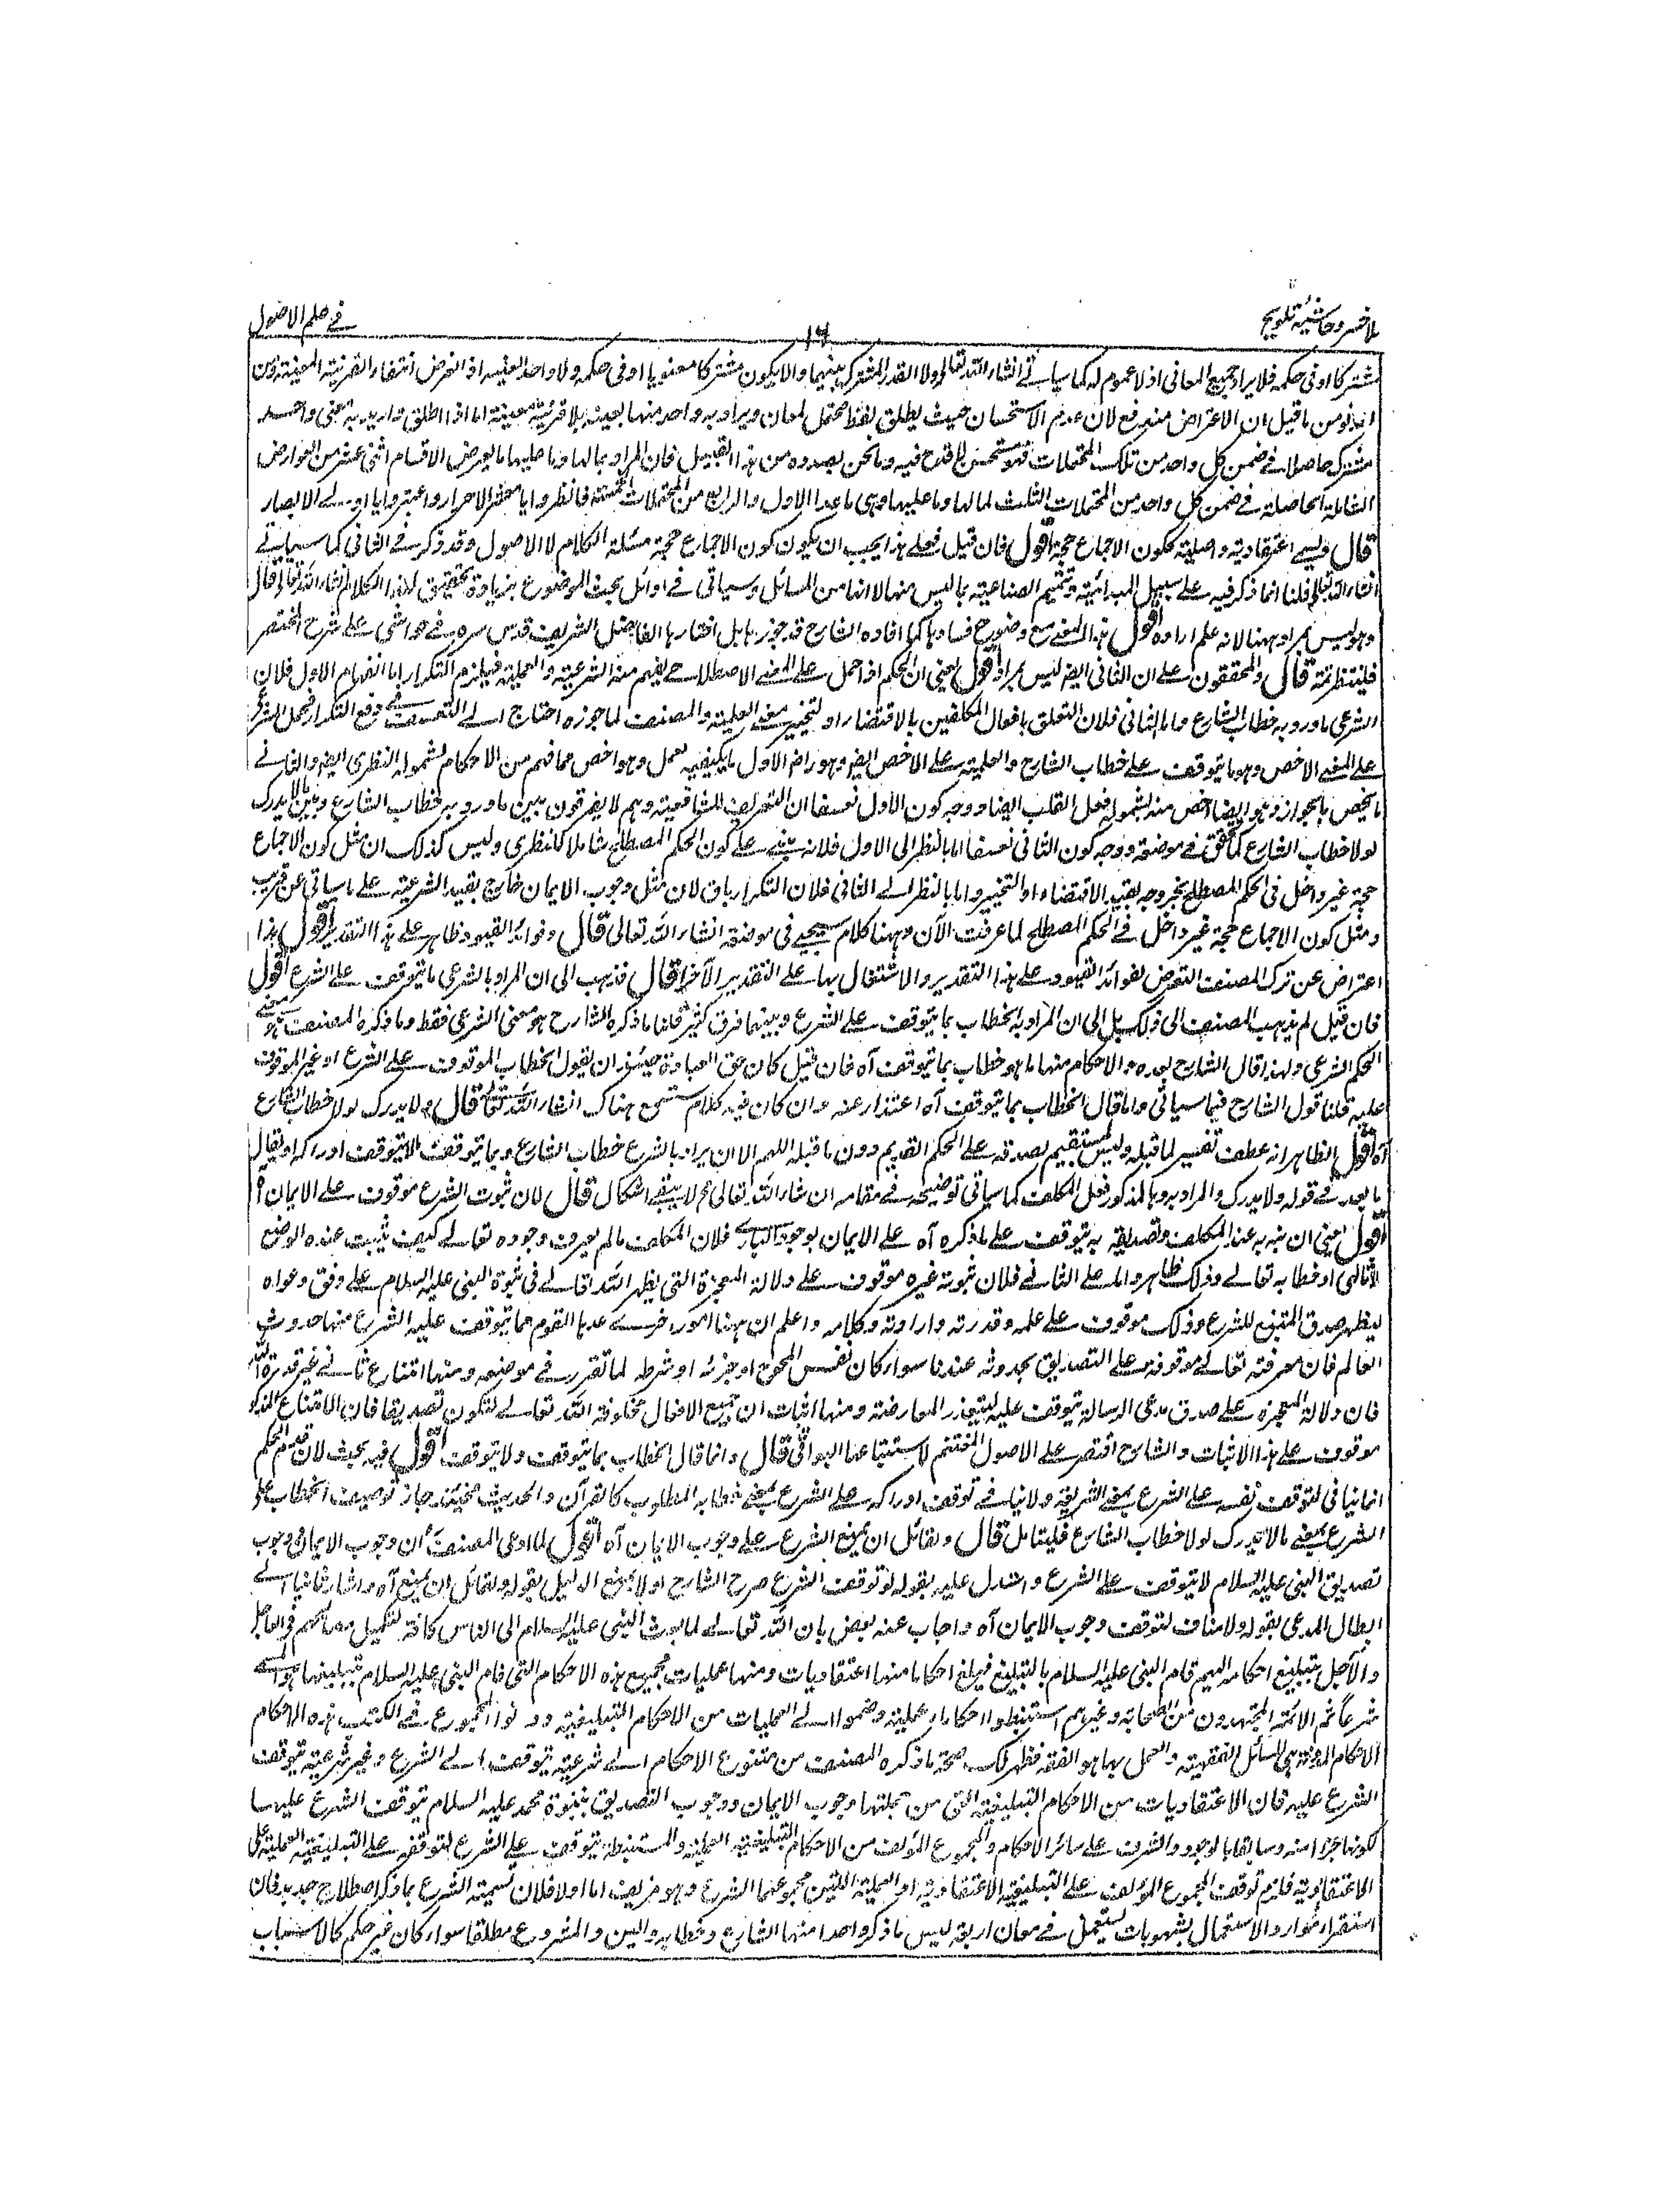 ملا خسرو حاشية تلويح
١٦
في علم الاصول
مشتركا او في حكمه فلا يراد جميع المعاني اذ لا عموم له كما سياتي انشاء الله تعالى ولا القدر المشترك بينهما والا يكون مشتركا معنويا او في حكمه ولا واحد بعينه اذ الفرض انتفاء القرينة المعينة ومن
قيل ان الاعتراض مندفع لان عدم الاستحسان حيث يطلق لفظ محتمل لمعان ويراد به واحد منها بعينه بلا قرينة معينة اما اذا اطلق واريد به معنى واحد
مشترك حاصل في ضمن كل واحد من تلك المحتملات فهو مستحسن لا قدح فيه وما نحن بصدده من هذا القبيل فان المراد بمالها وما عليها ما يعرض الاقسام اثنى عشر من العوارض
الحاصلة في ضمن كل واحد من المحتملات الثلث لمالها وما عليها وهي ما عدا الاول والرابع من المحتملات الخمسة فانظروا يا معشر الاحرار واعتبروا يا اولي الابصار
قال اعتقادية واصلية ككون الاجماع حجة اقول فان قيل فعلى هذا يجب ان يكون كون الاجماع حجة مسئلة الكلام لا الاصول وقد ذكر في الثاني كما سياتي
انشاء الله تعالى قلنا انما ذكر فيه على سبيل المبدائية وتتميم الصناعة بما ليس منها لا انها من المسائل وسياتي في اوائل بحث الموضوع زيادة تحقيق لهذا الكلام انشاء الله تعالى قال
وهو ليس بمراد ههنا لانه علم ارادة اقول هذا المعنى مع وضوح فسادها كما افاده الشارح قد جوزها بل اختارها الفاضل الشريف قدس سره في حواشي على شرح المختصر
فلينتظر ثمة قال والمحققون على ان الثاني ايضا ليس بمراد اقول يعني ان الحكم اذا حمل على المعنى الاصطلاحي يفهم منه الشرعية والعملية فيلزم التكرار اما انفهام الاول فلان
الشرعي ما ورد به خطاب الشارع واما الثاني فلان التعلق بافعال المكلفين بالاقتضاء او التخيير معنى العملية والمصنف لما جوزه احتاج الى التعسف في دفع التكرار فحمل الشرعي
على المعنى الاخص وهو ما يتوقف على خطاب الشارع والعملية على الاخص ايضا وهو اخص مما فهم من الاحكام لشموله النظري ايضا والثاني
ما يختص بالجوارح وهو ايضا اخص منه لشموله فعل القلب ايضا ووجه كون الاول تعسفا ان التعريف للشافعية وهم لا يفرقون بين ما ورد به خطاب الشارع وبين ما لا يدرك
لولا خطاب الشارع كما تحقق في موضعه ووجه كون الثاني تعسفا اما بالنظر الى الاول فلانه يبتني على كون الحكم المصطلح شاملا كالنظري وليس كذلك ان مثل كون الاجماع
حجة غير داخل في الحكم المصطلح بخروجه بقيد الاقتضاء او التخيير واما بالنظر الى الثاني فلان التكرار باق لان مثل وجوب الايمان خارج بقيد الشرعية على ما سياتي عن قريب
ومثل كون الاجماع حجة غير داخل في الحكم المصطلح لما عرفت الآن وههنا كلام سيجيء في موضعه انشاء الله تعالى قال وفوائد القيود ظاهر على هذا التقدير اقول هذا
اعتراض عن ترك المصنف التعرض لفوائد القيود على هذا التقدير والاشتغال بها على التقدير الآخر قال فذهب الى ان المراد بالشرعي ما يتوقف على الشرع اقول
فان قيل لم يذهب المصنف الى ذلك بل الى ان المراد به الخطاب بما يتوقف على الشرع وبينهما فرق كثير قلنا ما ذكره الشارح هو معنى الشرعي فقط وما ذكره المصنف هو معنى
الحكم الشرعي ولهذا قال الشارح بعده والاحكام منها ما هو خطاب بما يتوقف آه فان قيل كان حق العبارة حينئذ ان يقول الخطاب الموقوف على الشرع او غير الموقوف
عليه قلنا قول الشارح فيما سياتي وانما قال الخطاب بما يتوقف آه اعتذار عنه وان كان فيه كلام ستسمع هناك انشاء الله تعالى قال ولا يدرك لولا خطاب الشارع
آه اقول الظاهر انه عطف تفسير لما قبله وليس بمستقيم لصدقه على الحكم القديم دون ما قبله اللهم الا ان يراد بالشرع خطاب الشارع وبما يتوقف ما يتوقف ادراكه او يقال
في قوله ولا يدرك والمراد به وبالمذكور فعل المكلف كما سياتي توضيحه في مقامه ان شاء الله تعالى فلا يبقى اشكال قال لان ثبوت الشرع موقوف على الايمان آه
اقول يعني ان ثبوته عند المكلف وتصديقه به يتوقف على ما ذكره آه على الايمان بوجود الباري فلان المكلف ما لم يعرف وجوده تعالى كيف يثبت عنده الوضع
الالهي او خطابه تعالى وذلك ظاهر واما على الثاني فلان ثبوته غيره موقوف على دلالة المعجزة التي يظهر الله تعالى في نبوة النبي عليه السلام على وفق دعواه
ليظهر صدق المتبع للشرع وذلك موقوف على علمه وقدرته وارادته وكلامه واعلم ان ههنا امورا اخرى عدها القوم مما يتوقف عليه الشرع منها حدوث
العالم فان معرفته تعالى موقوفة على التصديق بحدوثه عندنا سواء كان نفس المحوج او جزئه او شرطه لما تقرر في موضعه ومنها امتناع تاثير غير قدرة الله
فان دلالة المعجزة على صدق مدعي الرسالة يتوقف عليه ليتعذر المعارضة ومنها اثبات ان جميع الافعال مخلوقة الله تعالى لتكون تصديقا فان الامتناع المذكور
موقوف على هذا الاثبات والشارح اقتصر على الاصول لاستتباعها البواقي قال وانما قال الخطاب بما يتوقف ولا يتوقف اقول فيه بحث لان قدم الحكم
انما ينافي توقف نفسه على الشرع بمعنى الشريعة ولا ينافي توقف ادراكه على الشرع بمعنى خطابه المطلوب كالقرآن والحديث فحينئذ جاز توصيف الخطاب على
الشرع بمعنى ما لا يدرك لولا خطاب الشارع فليتامل قال ولقائل ان يمنع الشرع على وجوب الايمان آه اقول لما ادعى المصنف ان وجوب الايمان ووجوب
تصديق النبي عليه السلام لا يتوقف على الشرع واستدل عليه بقوله لو توقف الشرع صرح الشارح اولا بمنع الدليل بقوله ولقائل ان يمنع آه واشار ثانيا الى
ابطال المدعى بقوله ولا مناف لتوقف وجوب الايمان آه واجاب عنه بعض بان الله تعالى لما بعث النبي عليه السلام الى الناس كافة لتكميل مصالحهم في العاجل
والآجل بتبليغ احكامه اليهم قام النبي عليه السلام بالتبليغ فبلغ احكاما منها اعتقاديات ومنها عمليات فجميع هذه الاحكام التي قام النبي عليه السلام بتبليغها هو المسمى
شرعا ثم الائمة المجتهدون من الصحابة وغيرهم استنبطوا احكاما عملية وضموا الى العمليات من الاحكام التبليغية ودونوا المجموع في الكتب فهذه الاحكام
الاحكام المدونة هي المسائل الفقهية والعمل بها هو الفقه فظهر لك صحة ما ذكره المصنف من تنوع الاحكام الى شرعية يتوقف على الشرع وغير شرعية يتوقف
الشرع عليه فان الاعتقاديات من الاحكام التبليغية التي من جملتها وجوب الايمان ووجوب التصديق بنبوة محمد عليه السلام يتوقف الشرع عليها
لكونها جزءا منه وسابقا بالوجود والشرف على سائر الاحكام والمجموع المؤلف من الاحكام التبليغية العملية والمستنبطة يتوقف على الشرع لتوقفه على التبليغية العملية على
الاعتقادية فلزم توقف المجموع المؤلف على التبليغية الاعتقادية او العملية اللتين مجموعهما الشرع وهو مزيف اما اولا فلان تسمية الشرع بما ذكر اصطلاح جديد فانا
استقراء موارد الاستعمال يشهد بان يستعمل في معان اربعة ليس ما ذكر واحدا منها الشارع وخطابه والدين والمشروع مطلقا سواء كان غير حكم كالاسباب